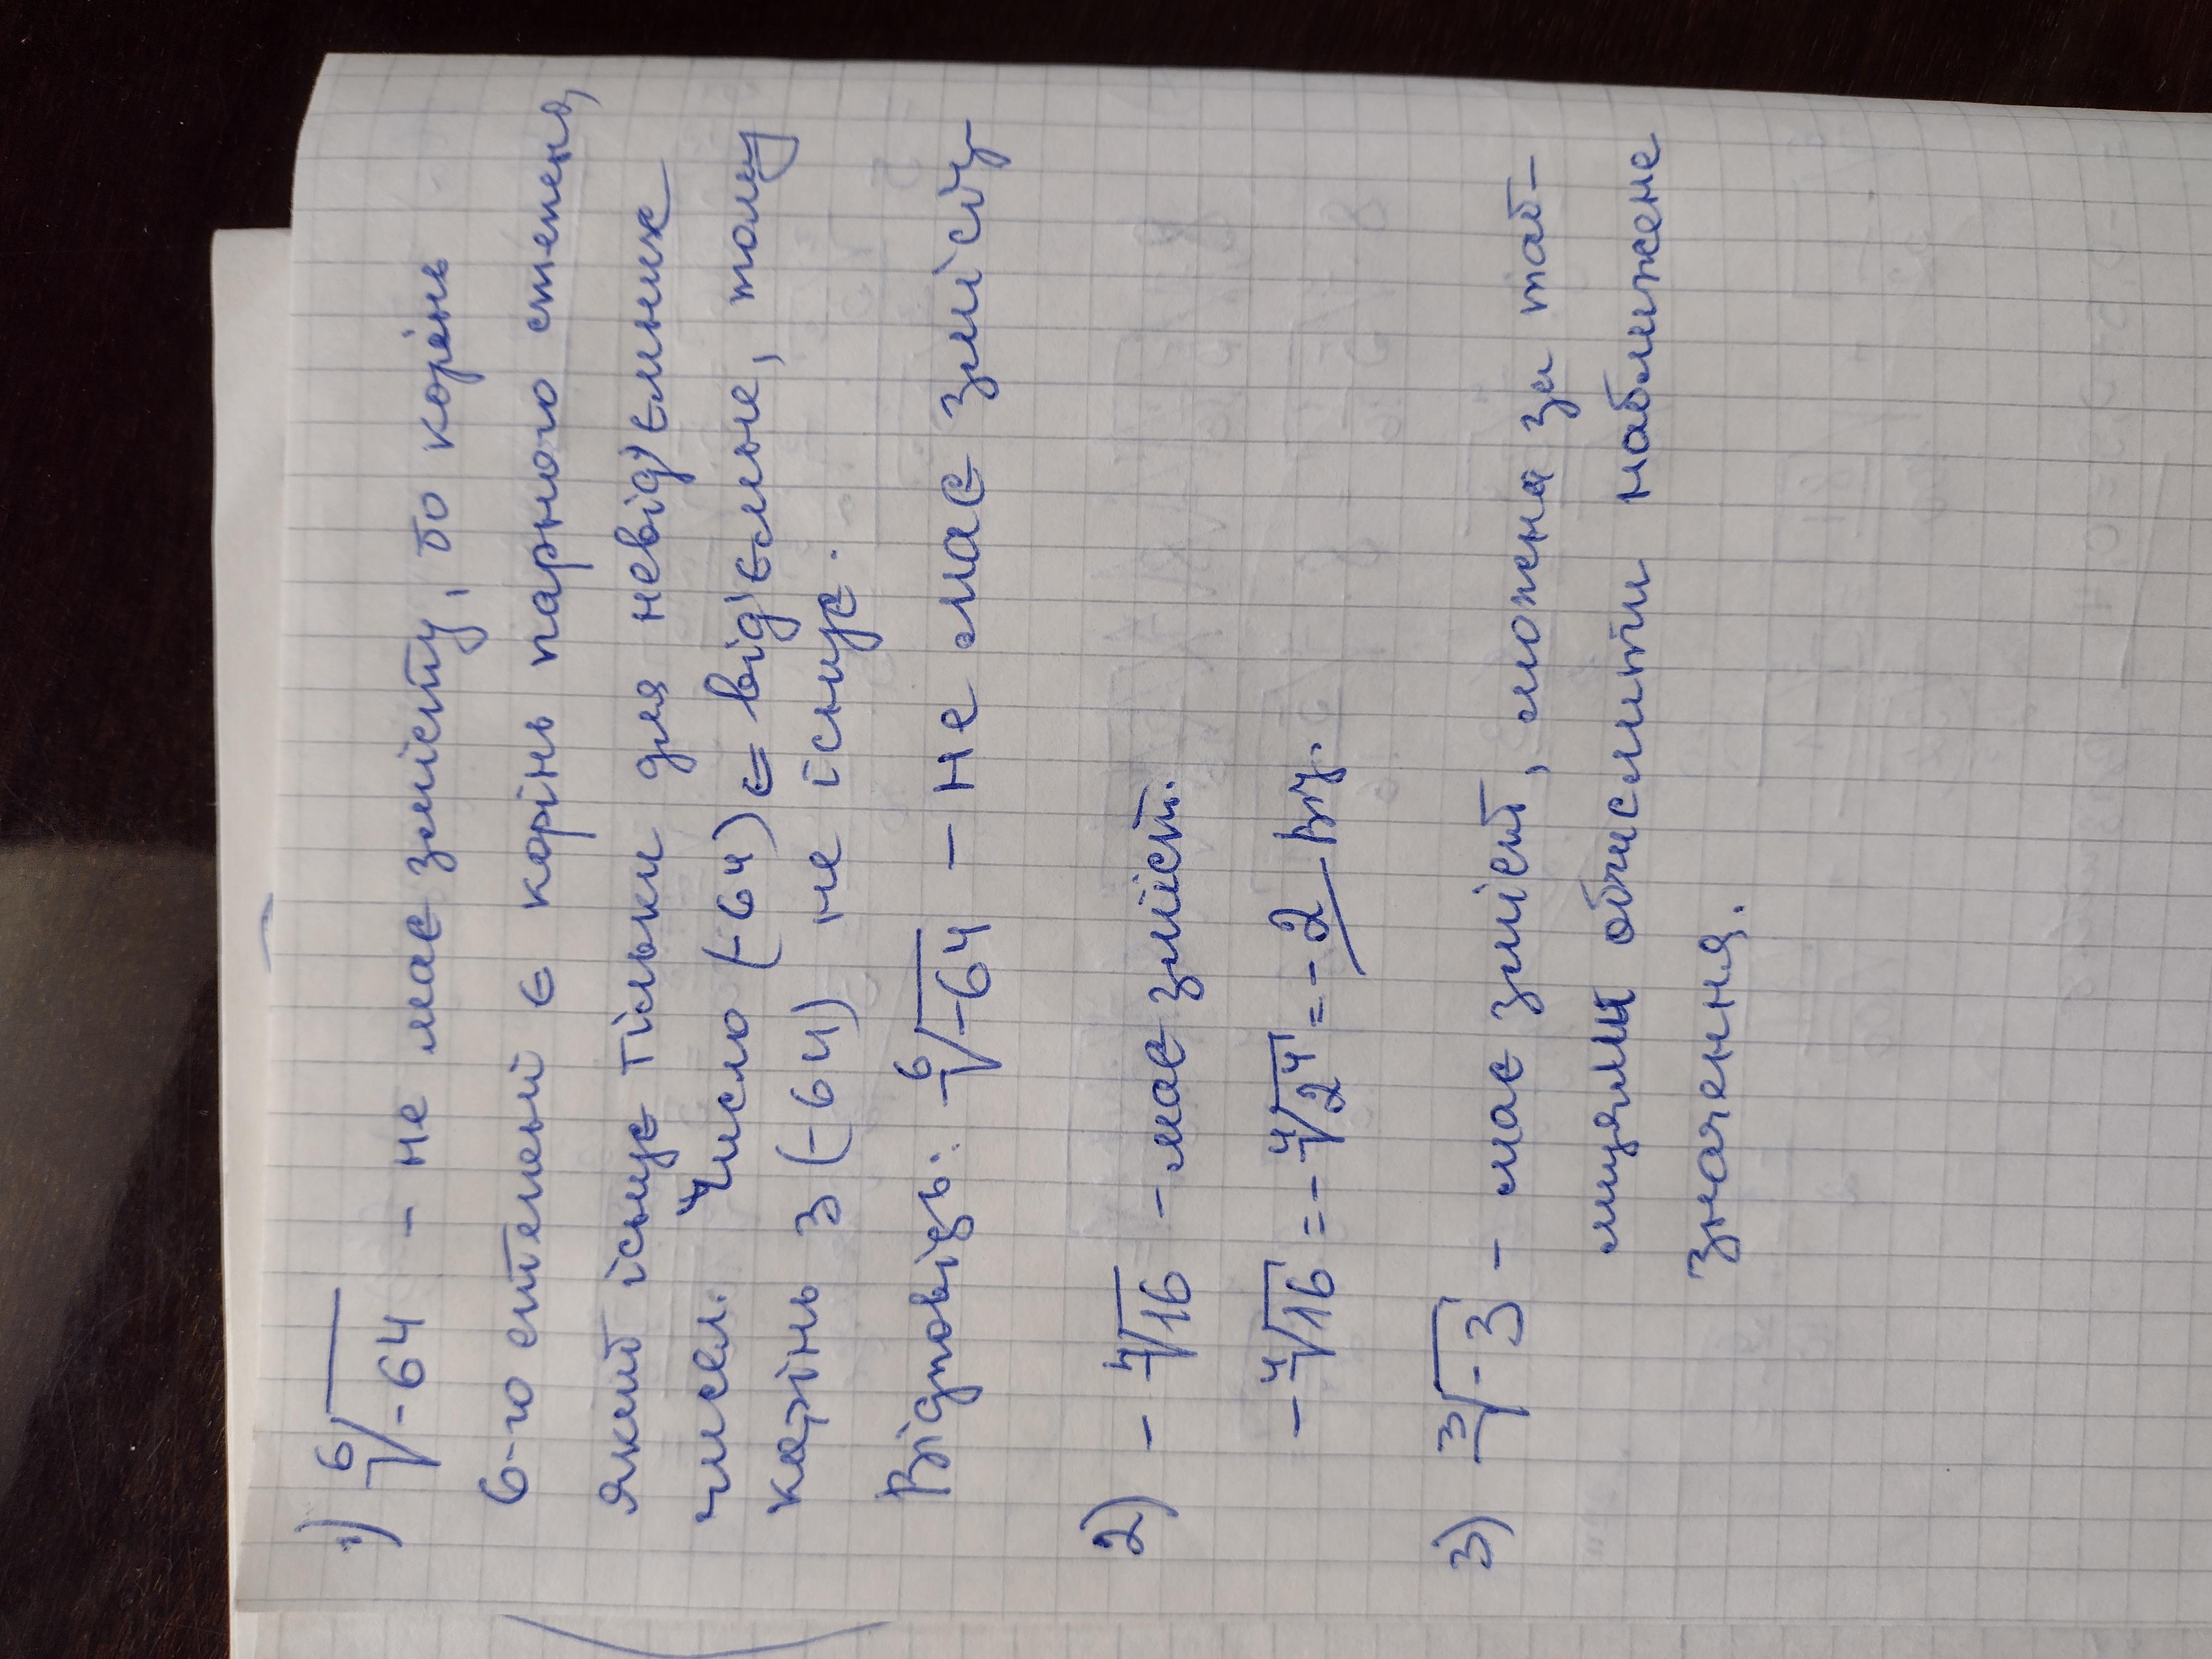 1) ⁶√-64 - не має змісту, бо корінь
6-го степеня є корінь парного степеня,
який існує тільки для невід'ємних
чисел. Число (-64) є від'ємне, тому
корінь з (-64) не існує.
Відповідь: ⁶√-64 - не має змісту
2) - ⁴√16 - має зміст.
- ⁴√16 = - ⁴√2⁴ = - 2
3) ³√-3 - має зміст, можна за таб-
лицями обчислити наближене
значення.